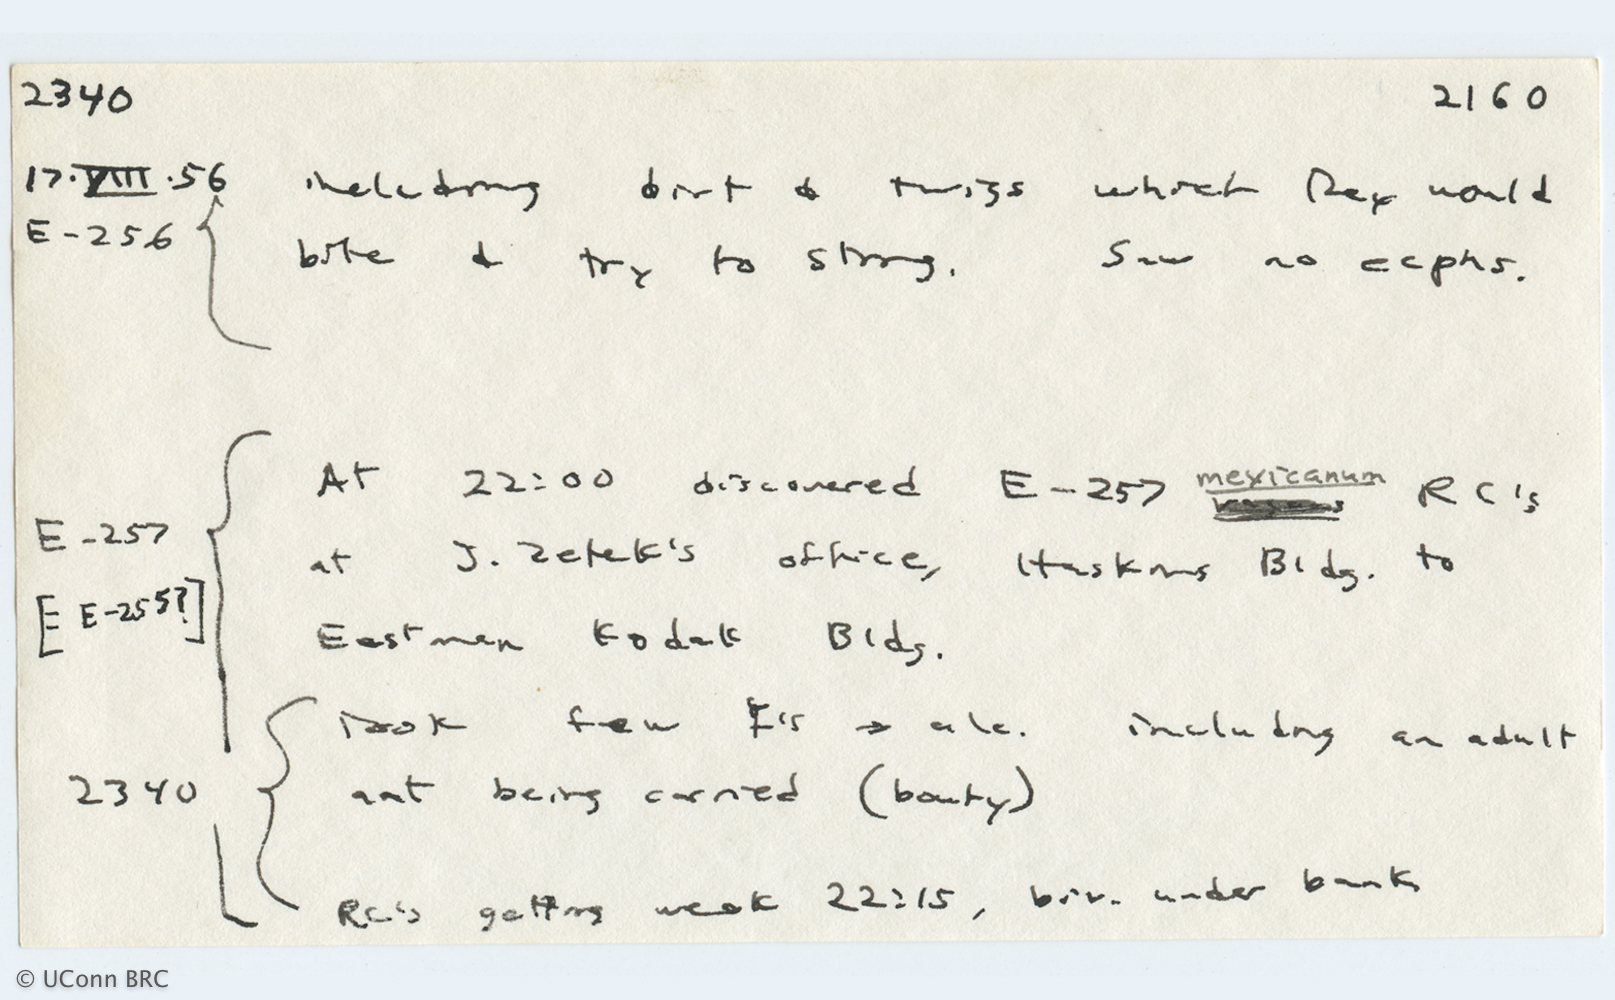 2340 2160
17.VIII.56 including dirt & twigs which they would
E-256 bite & try to sting. Saw no ecphs.
At 22:00 discovered E-257 mexicanum RC's
E-257 at J. Zetek's office, Haskins Bldg. to
[E E-255?] Eastman Kodak Bldg.
Took few E's → alc. including an adult
2340 ant being carried (booty)
RC's getting weak 22:15, biv. under bank
© UConn BRC